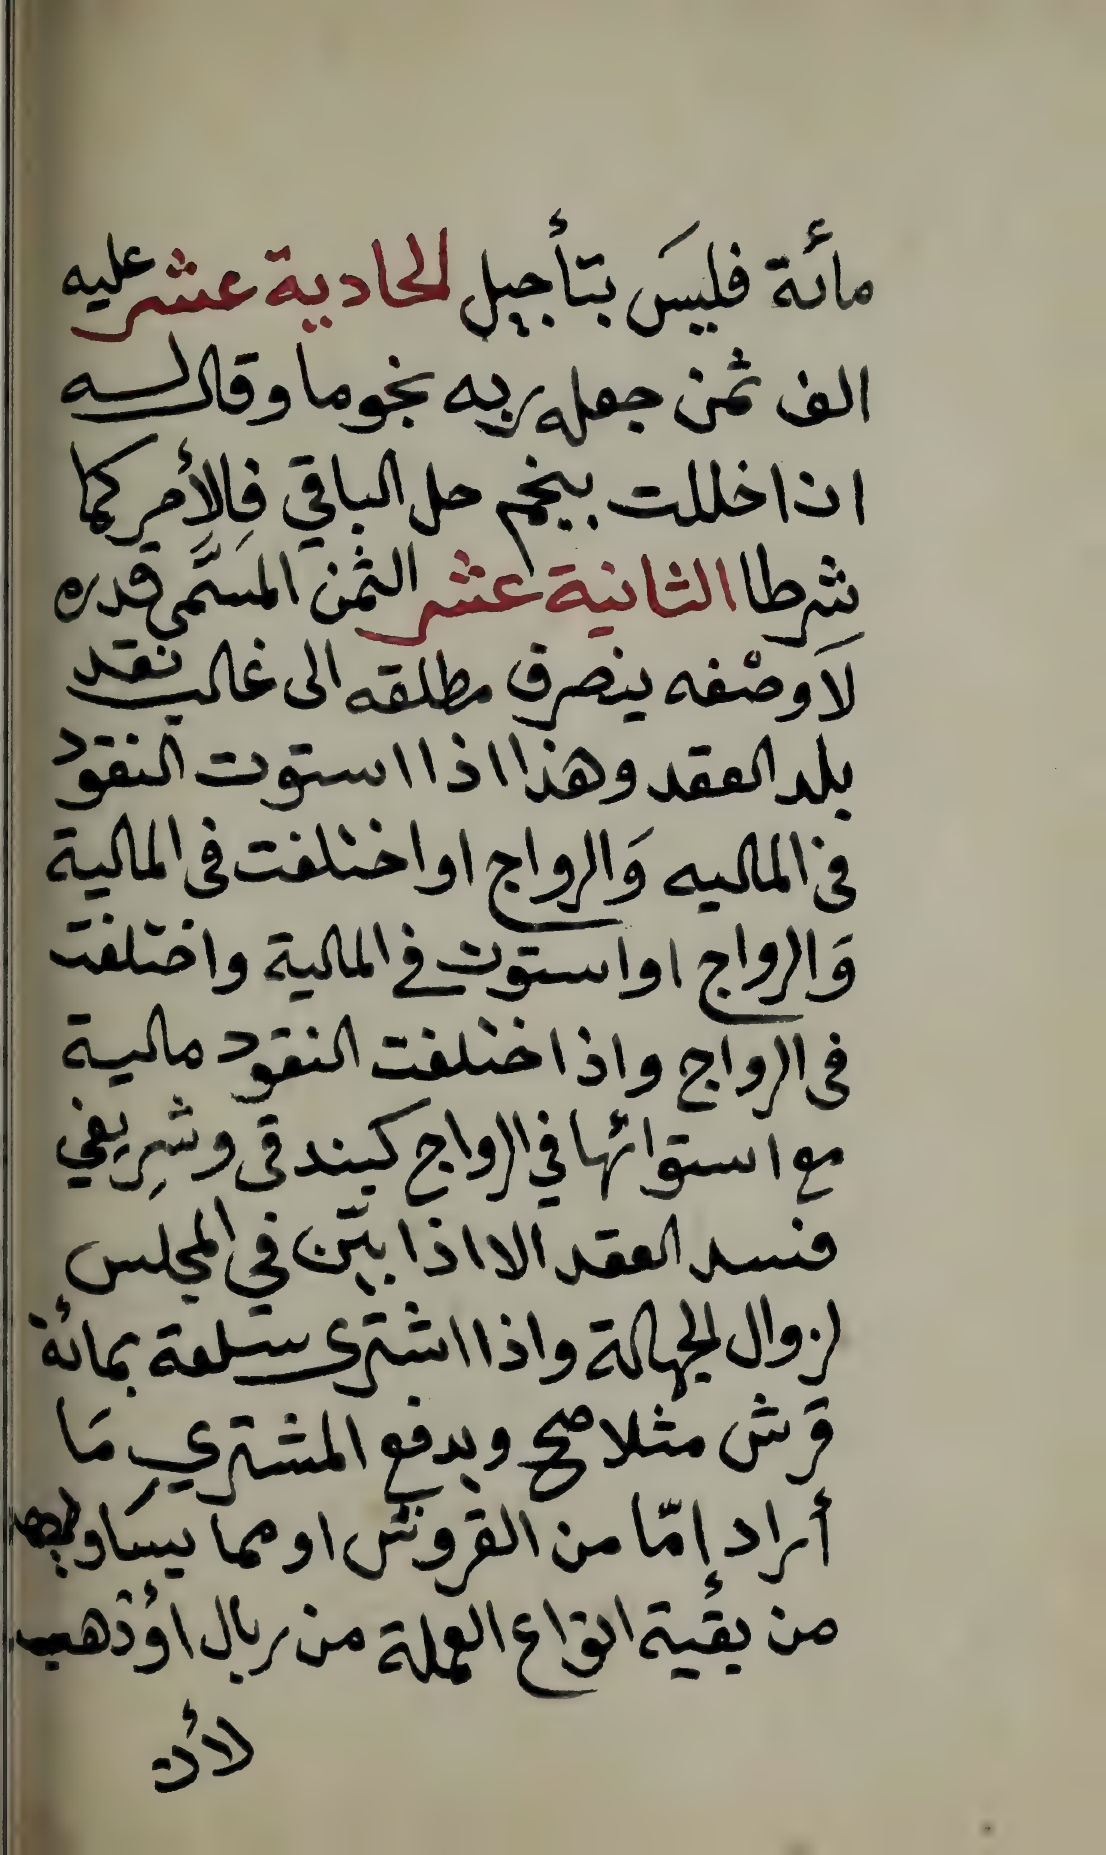 مأئة فليسَ بتأجيل الحادية عشر عليه
الف ثمن جعله ربه نجوما وقال له
اذا خللت بنجم حل الباقي فالِأمر كما
شرطا الثانية عشر الثمن المسَمّى قدره
لَاوصْفه ينصرف مطلقه الى غالب نقد
بلد العقد وهذا اذا استوت النقود
فى الماليه وَالرواج او اختلفت فى المالية
وَالرواج او استوت في المالية واختلفت
فى الرواج واذا ختلفت النقود مالية
مع استوائها في الرواج كبندقى وشرِيفي
فسد العقد الا اذا بيّن في المجلس
لزوال الجهالة واذا اشترى سلعة بمائة
قرش مثلا صح ويدفع المشتري مَا
أراد إمّا من القروش او مما يسَاويها
من بقية انواع العملة من ريال اؤذهب
لأن